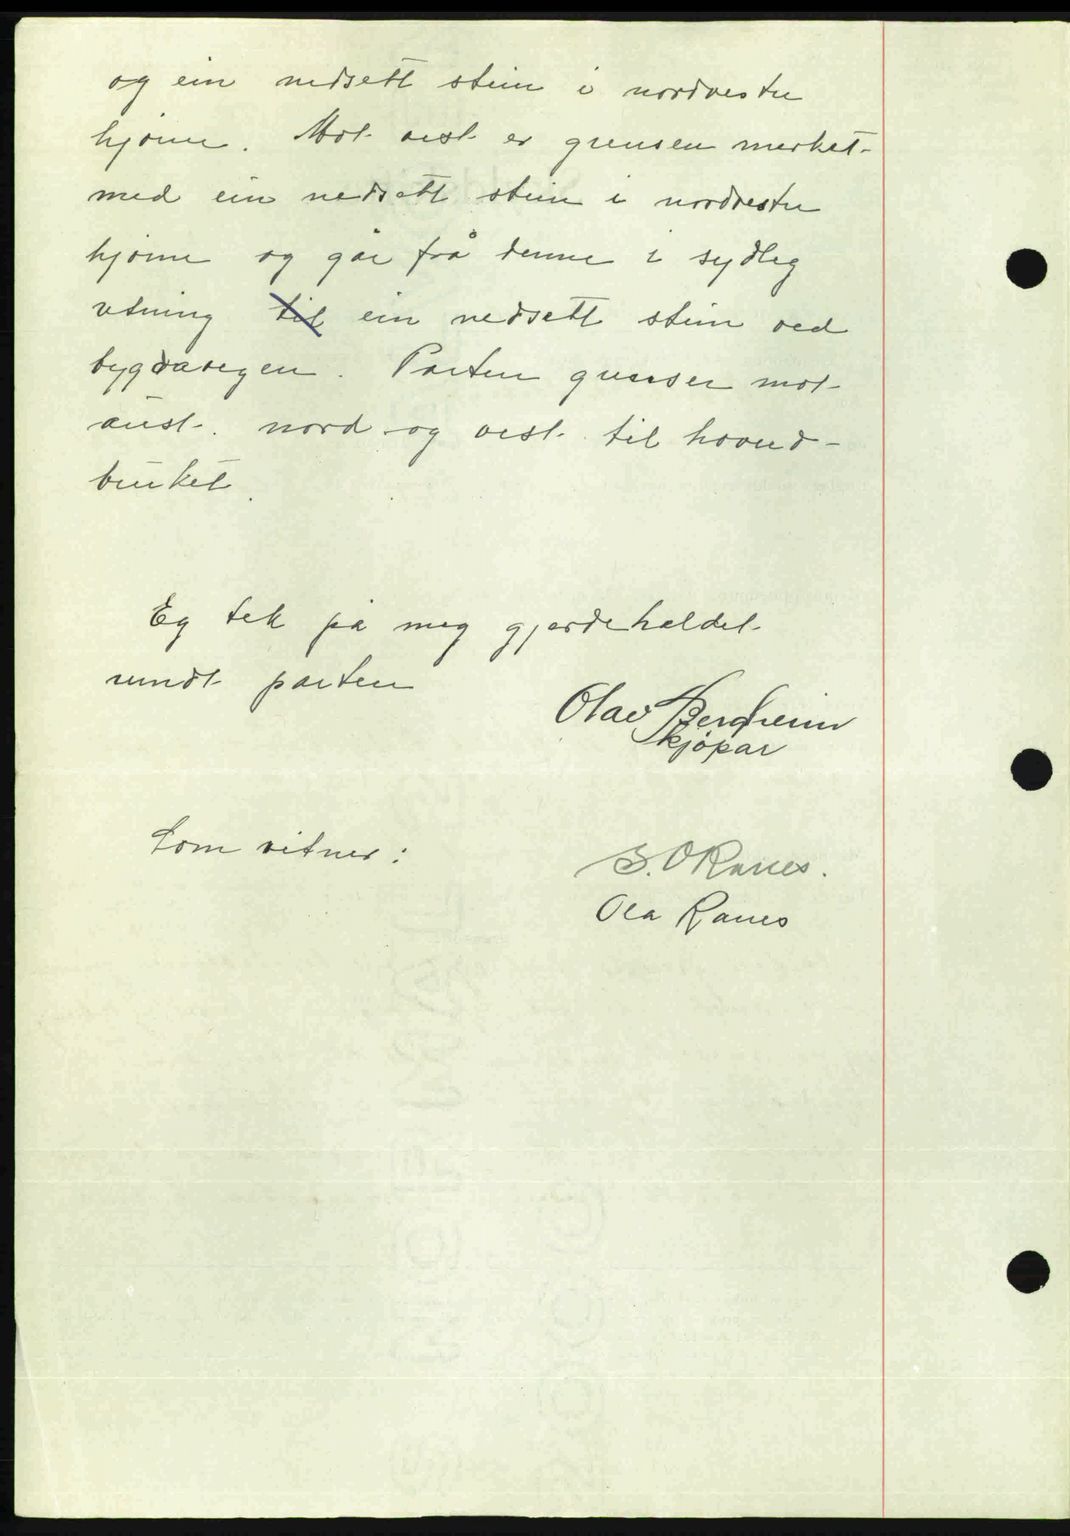 og ein nedsett stein i nordvestre
hjørne. Mot vest er grensen merket
med ein nedsett stein i nordvestre
hjørne og går frå denne i sydleg
retning til ein nedsett stein ved
bygdavegen. Parten grenser mot
aust, nord og vest til hovud-
bruket.
Eg tek på meg gjerdehaldet
rundt parten
Olav Bergheim
kjøpar
Som vitner:
S. O Ranes.
Ola Ranes